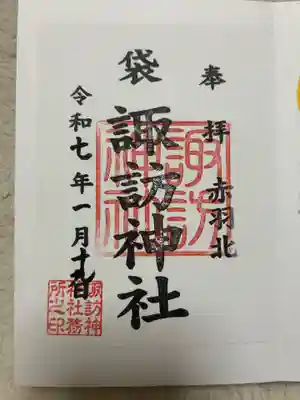 奉拝 赤羽北
袋 諏訪神社
令和七年一月十九日
諏訪
神社
諏訪神
社社務
所之印